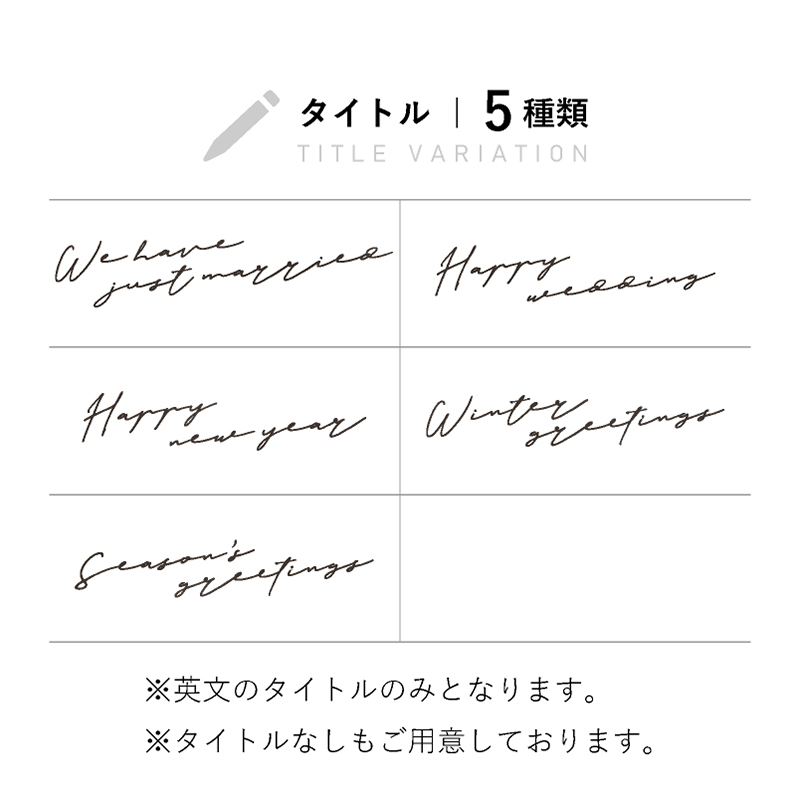 タイトル | 5種類
TITLE VARIATION
We have
just married
Happy
wedding
Happy
new year
Winter
greetings
Season's
greetings
※英文のタイトルのみとなります。
※タイトルなしもご用意しております。